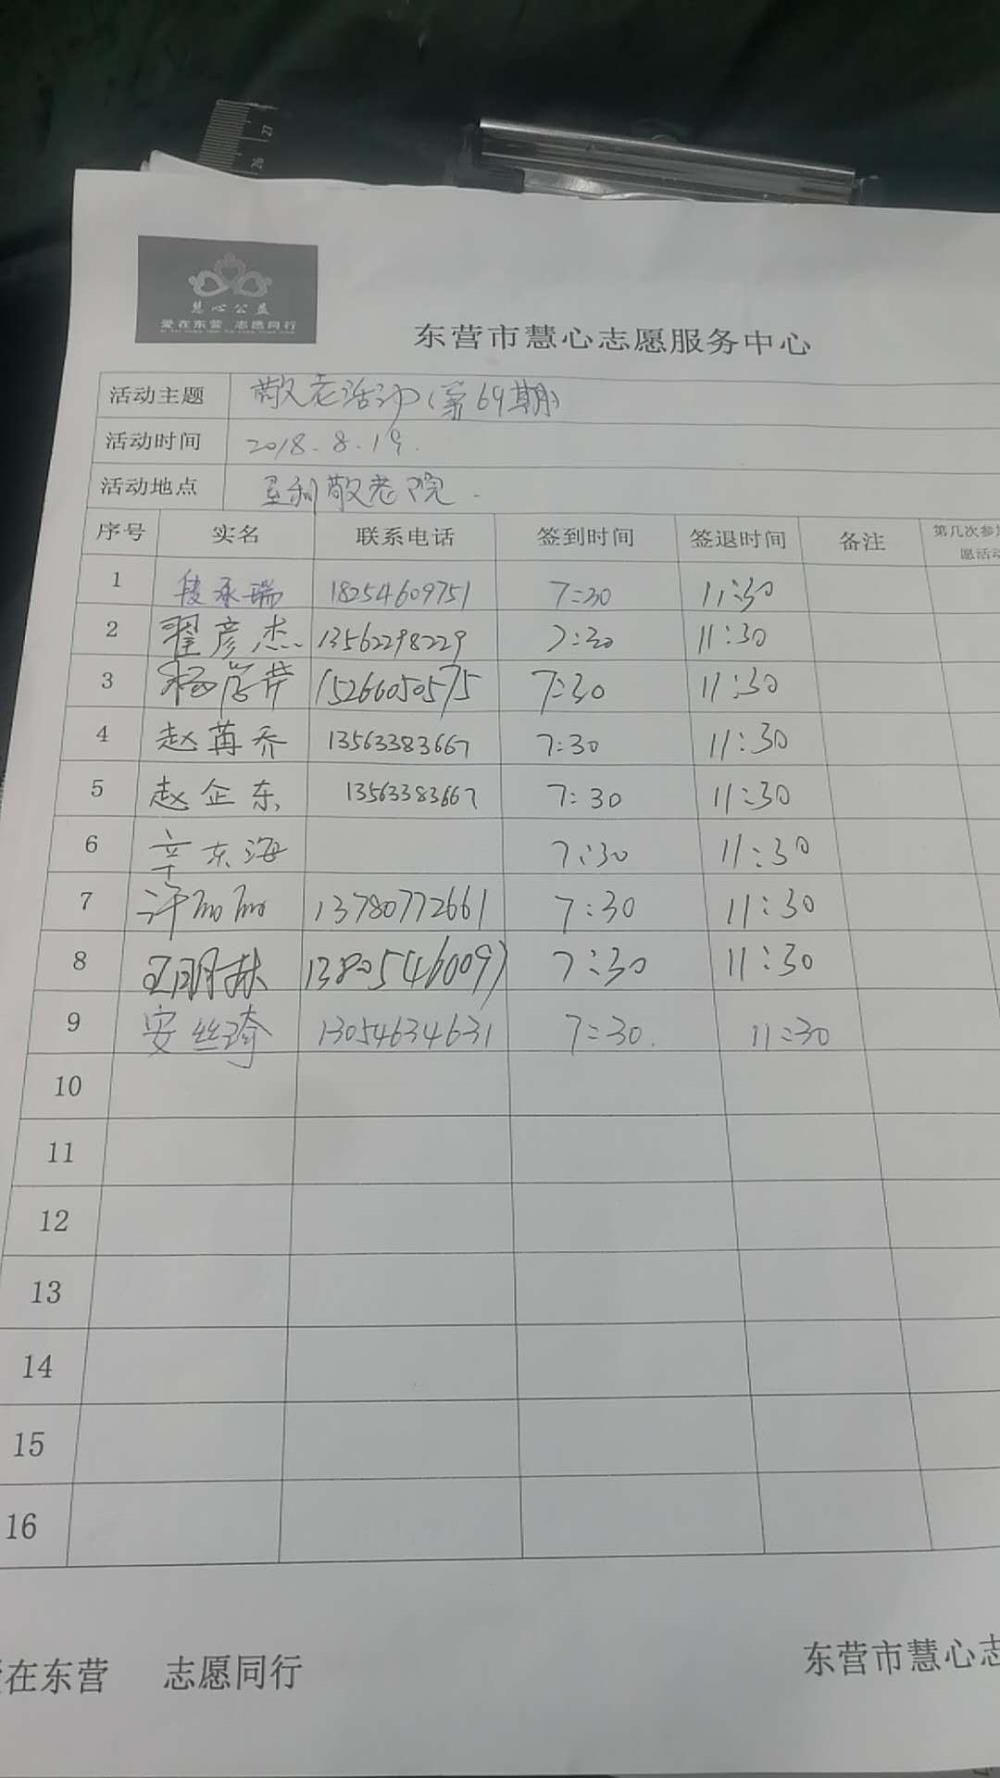 27
26
慧心公益
爱在东营 志愿同行
东营市慧心志愿服务中心
活动主题 敬老活动(第69期)
活动时间 2018.8.19.
活动地点 垦利敬老院.
序号 实名 联系电话 签到时间 签退时间 备注 第几次参加
愿活动
1 段承瑞 18254609751 7:30 11:30
2 翟彦杰 13562298229 7:30 11:30
3 15266050575 7:30 11:30
4 赵苒乔 13563383667 7:30 11:30
5 赵企东 13563383667 7:30 11:30
6 辛东海 7:30 11:30
7 许丽丽 13780772661 7:30 11:30
8 13805460097 7:30 11:30
9 安丝琦 13054634631 7:30. 11:30
10
11
12
13
14
15
16
爱在东营 志愿同行 东营市慧心志